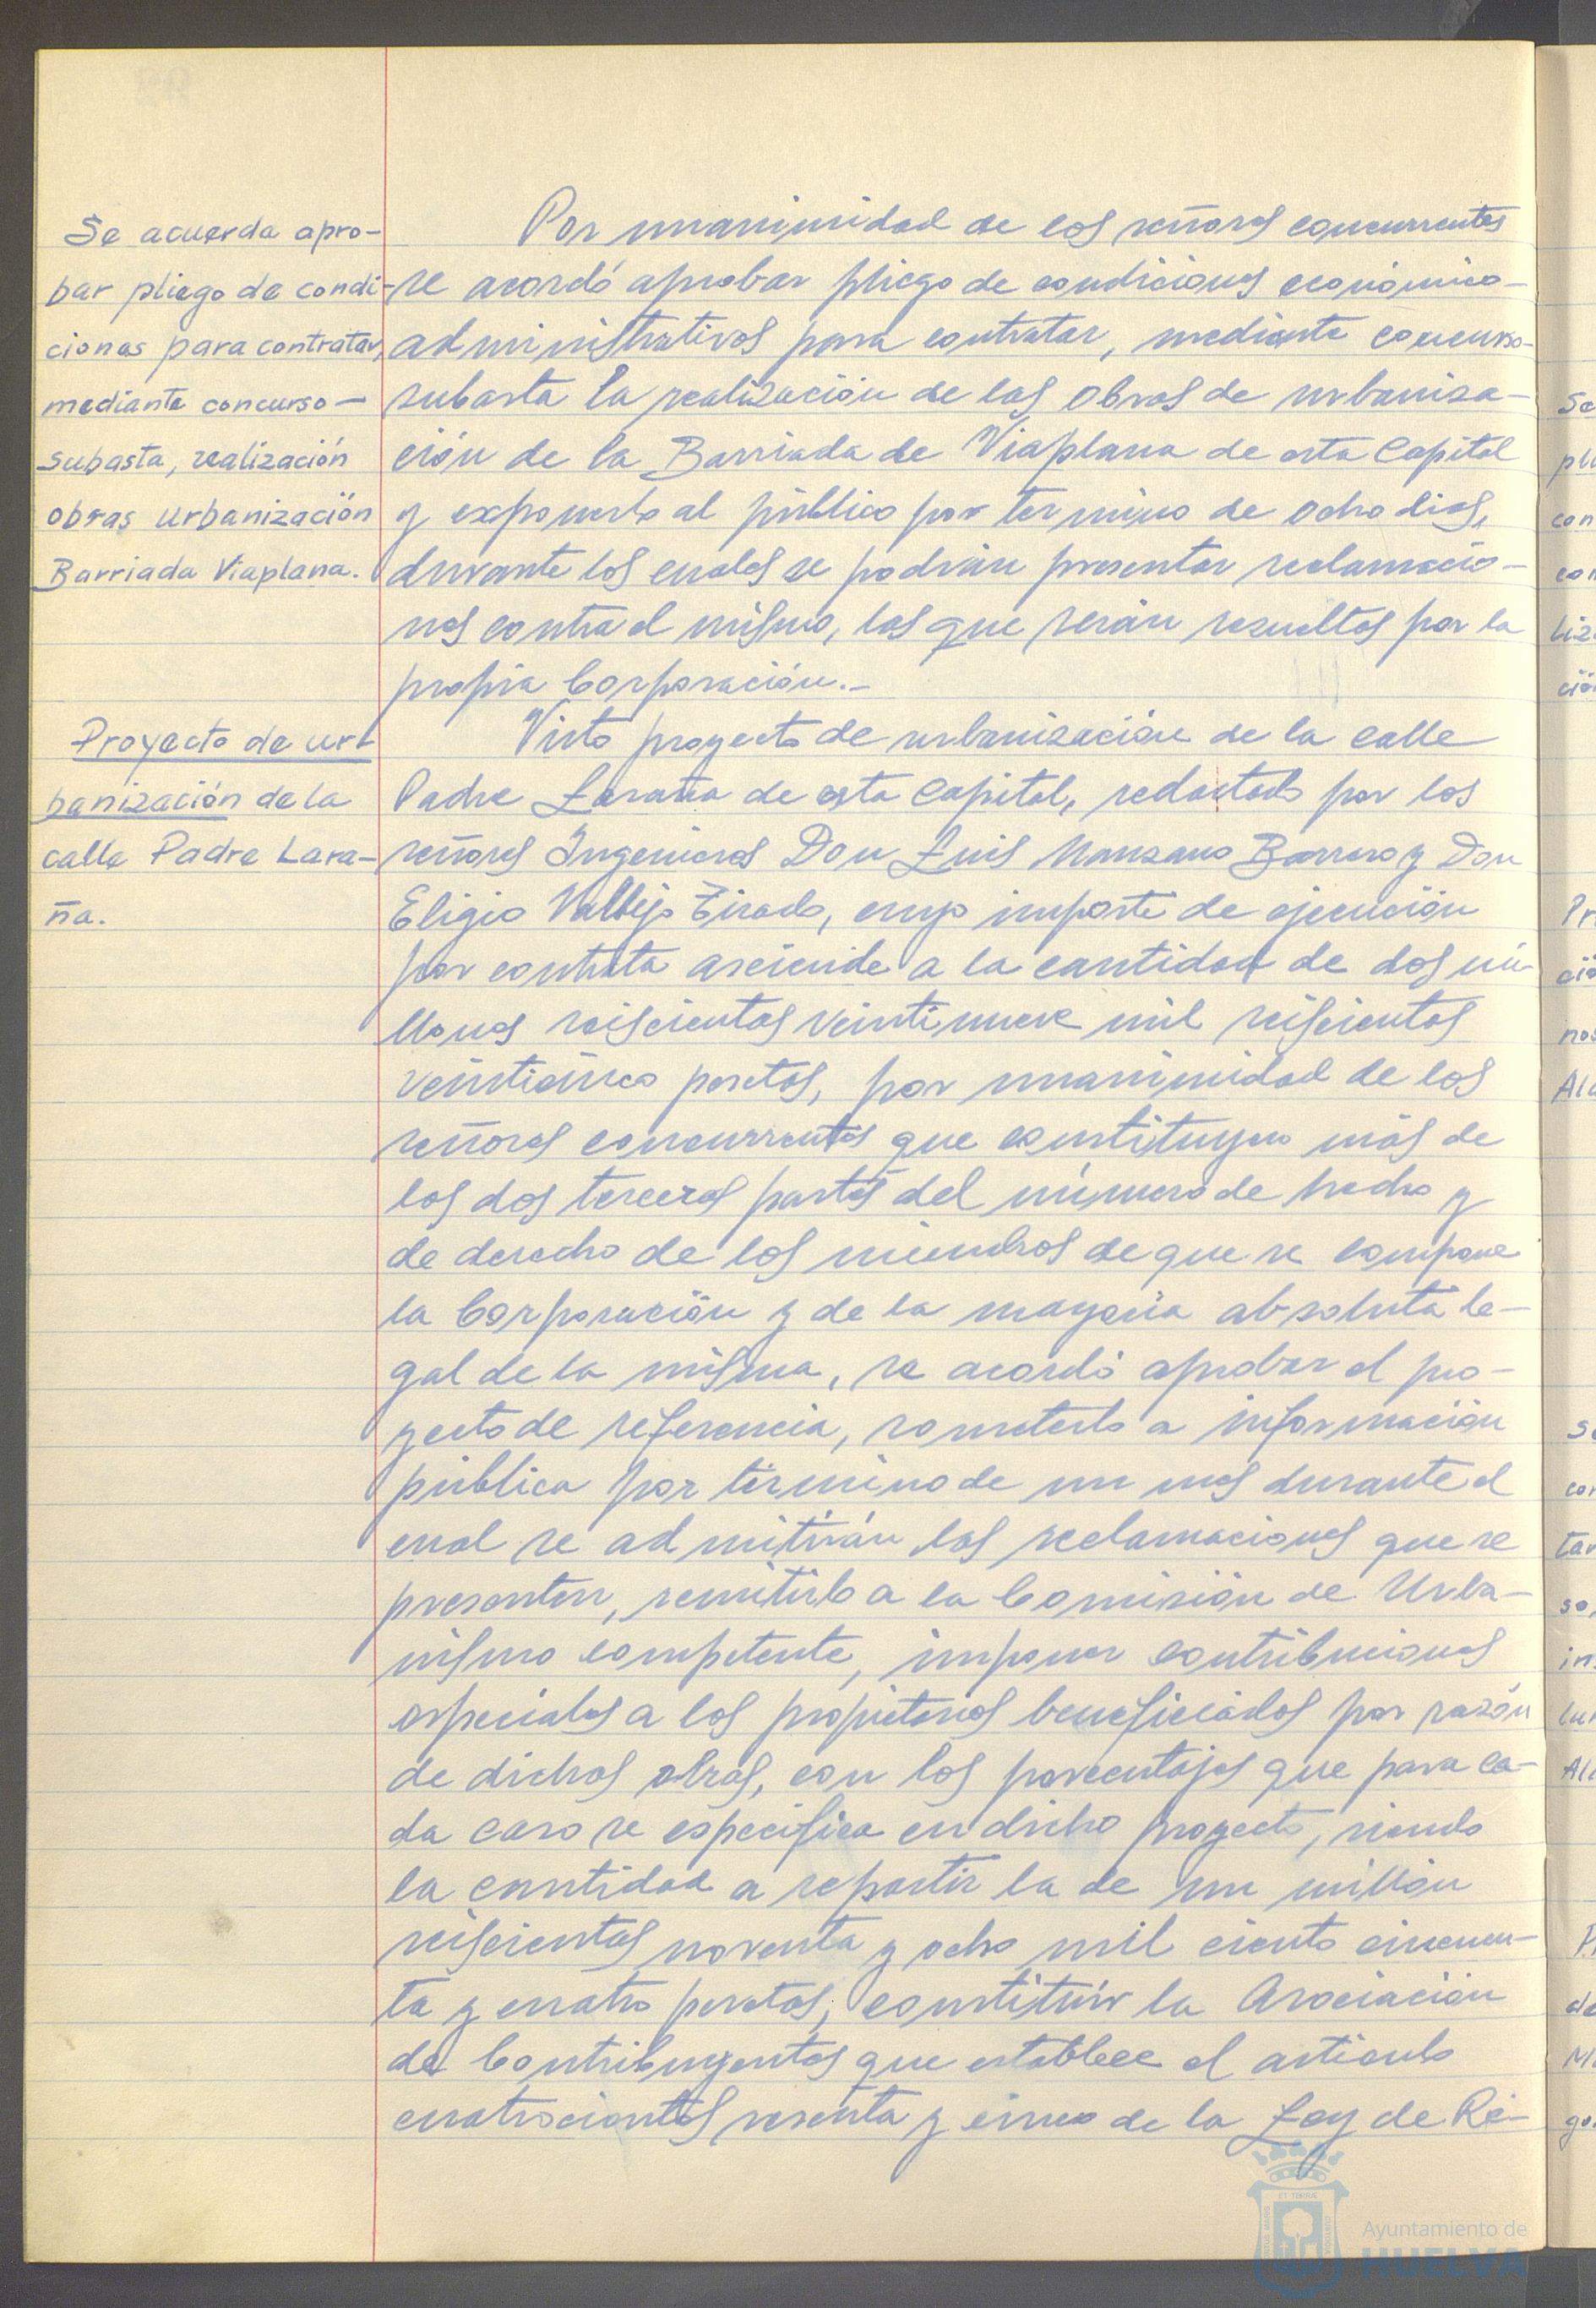 Se acuerda apro-
bar pliego de condi-
ciones para contratar,
mediante concurso-
subasta, realización
obras urbanización
Barriada Viaplana.
Por unanimidad de los señores concurrentes
se acordó aprobar pliego de condiciones económico-
administrativas para contratar, mediante concurso-
subasta la realización de las obras de urbaniza-
ción de la Barriada de Viaplana de esta Capital
y exponerlo al público por termino de ocho dias,
durante los cuales se podrán presentar reclamacio-
nes contra el mismo, las que serán resueltas por la
propia Corporación.-
Proyecto de ur-
banización de la
calle Padre Lara-
ña.
Visto proyecto de urbanización de la calle
Padre Laraña de esta Capital, redactado por los
señores Ingenieros Don Luis Manzano Barrero y Don
Eligio Vallejo Tirado, cuyo importe de ejecución
por contrata asciende a la cantidad de dos mi-
llones seiscientas veintinueve mil seiscientas
veinticinco pesetas, por unanimidad de los
señores concurrentes que constituyen más de
las dos terceras partes del número de hecho y
de derecho de los miembros de que se compone
la Corporación y de la mayoría absoluta le-
gal de la misma, se acordó aprobar el pro-
yecto de referencia, someterlo a información
pública por término de un mes durante el
cual se admitirán las reclamaciones que se
presenten, remitirlo a la Comisión de Urba-
nismo competente, imponer contribuciones
especiales a los propietarios beneficiados por razón
de dichas obras, con los porcentajes que para ca-
da caso se especifica en dicho proyecto, siendo
la cantidad a repartir la de un millón
seiscientas noventa y ocho mil ciento cincuen-
ta y cuatro pesetas, constituir la Asociación
de Contribuyentes que establece el artículo
cuatrocientos sesenta y cinco de la Ley de Ré-
Ayuntamiento de
HUELVA